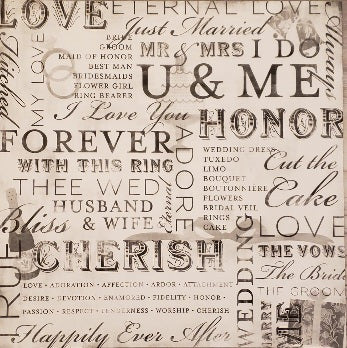 LOVE
ETERNAL LOVE
Just Married
Always
Hitched
MY LOVE
BRIDE
GROOM
MAID OF HONOR
BEST MAN
BRIDESMAIDS
FLOWER GIRL
RING BEARER
MR & MRS I DO
U & ME
I Love You
HONOR
FOREVER
ADORE
WITH THIS RING
THEE WED
HUSBAND
& WIFE
Eternal
WEDDING DRESS
TUXEDO
LIMO
BOUQUET
BOUTONNIÈRE
FLOWERS
BRIDAL VEIL
RINGS
CAKE
Cut the
Cake
Bliss
TRUE
CHERISH
WEDDING
LOVE
THE VOWS
The Bride
THE GROOM
LOVE • ADORATION • AFFECTION • ARDOR • ATTACHMENT
DESIRE • DEVOTION • ENAMORED • FIDELITY • HONOR •
PASSION • RESPECT • TENDERNESS • WORSHIP • CHERISH
Happily Ever After
MARRY
ME